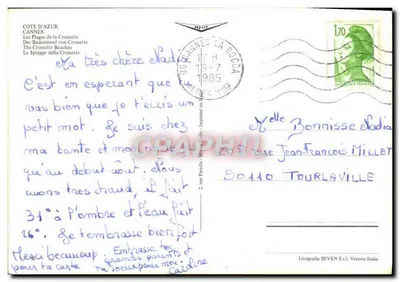 COTE D'AZUR
CANNES
Les Plages de la Croisette
Der Badestrand von Croisette
The Croisette Beaches
Le Spiagge della Croisette
Ma très chère Nadia
C'est en esperant que tu
vas bien que je t'ecris un
petit mot. Je suis chez
ma tante et
qu'au début août. Nous
avons très chaud, il fait
31° à l'ombre et l'eau fait
26°. Je t'embrasse bien fort
Merci beaucoup
pour ta carte
Embrasse tes
grands parents et
ta soeur pour moi.
Caroline
CANNES LA BOCCA
18-7
1985
1,70
Melle Bonnisse Nadia
Rue Jean-François MILLET
50110 TOURLAVILLE
Litografia SEVEN S.r.l. Verona Italia
DELCAMPE